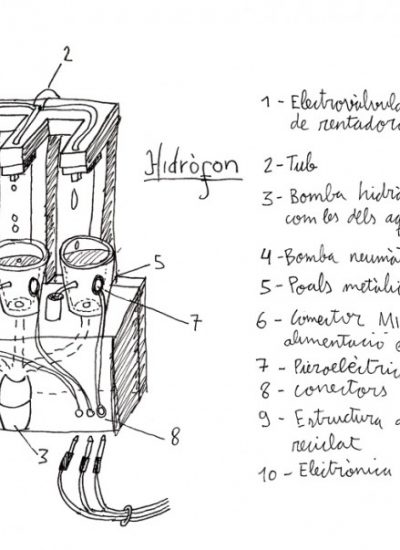 2
Hidròfon
5
7
8
3
1 - Electrovàlvula
de rentadora
2 - Tub
3 - Bomba
com les dels
4 - Bomba
5 - Poals
6 - Conector
alimentació
7 -
8 - conectors
9 - Estructura
reciclat
10 - Electrònica